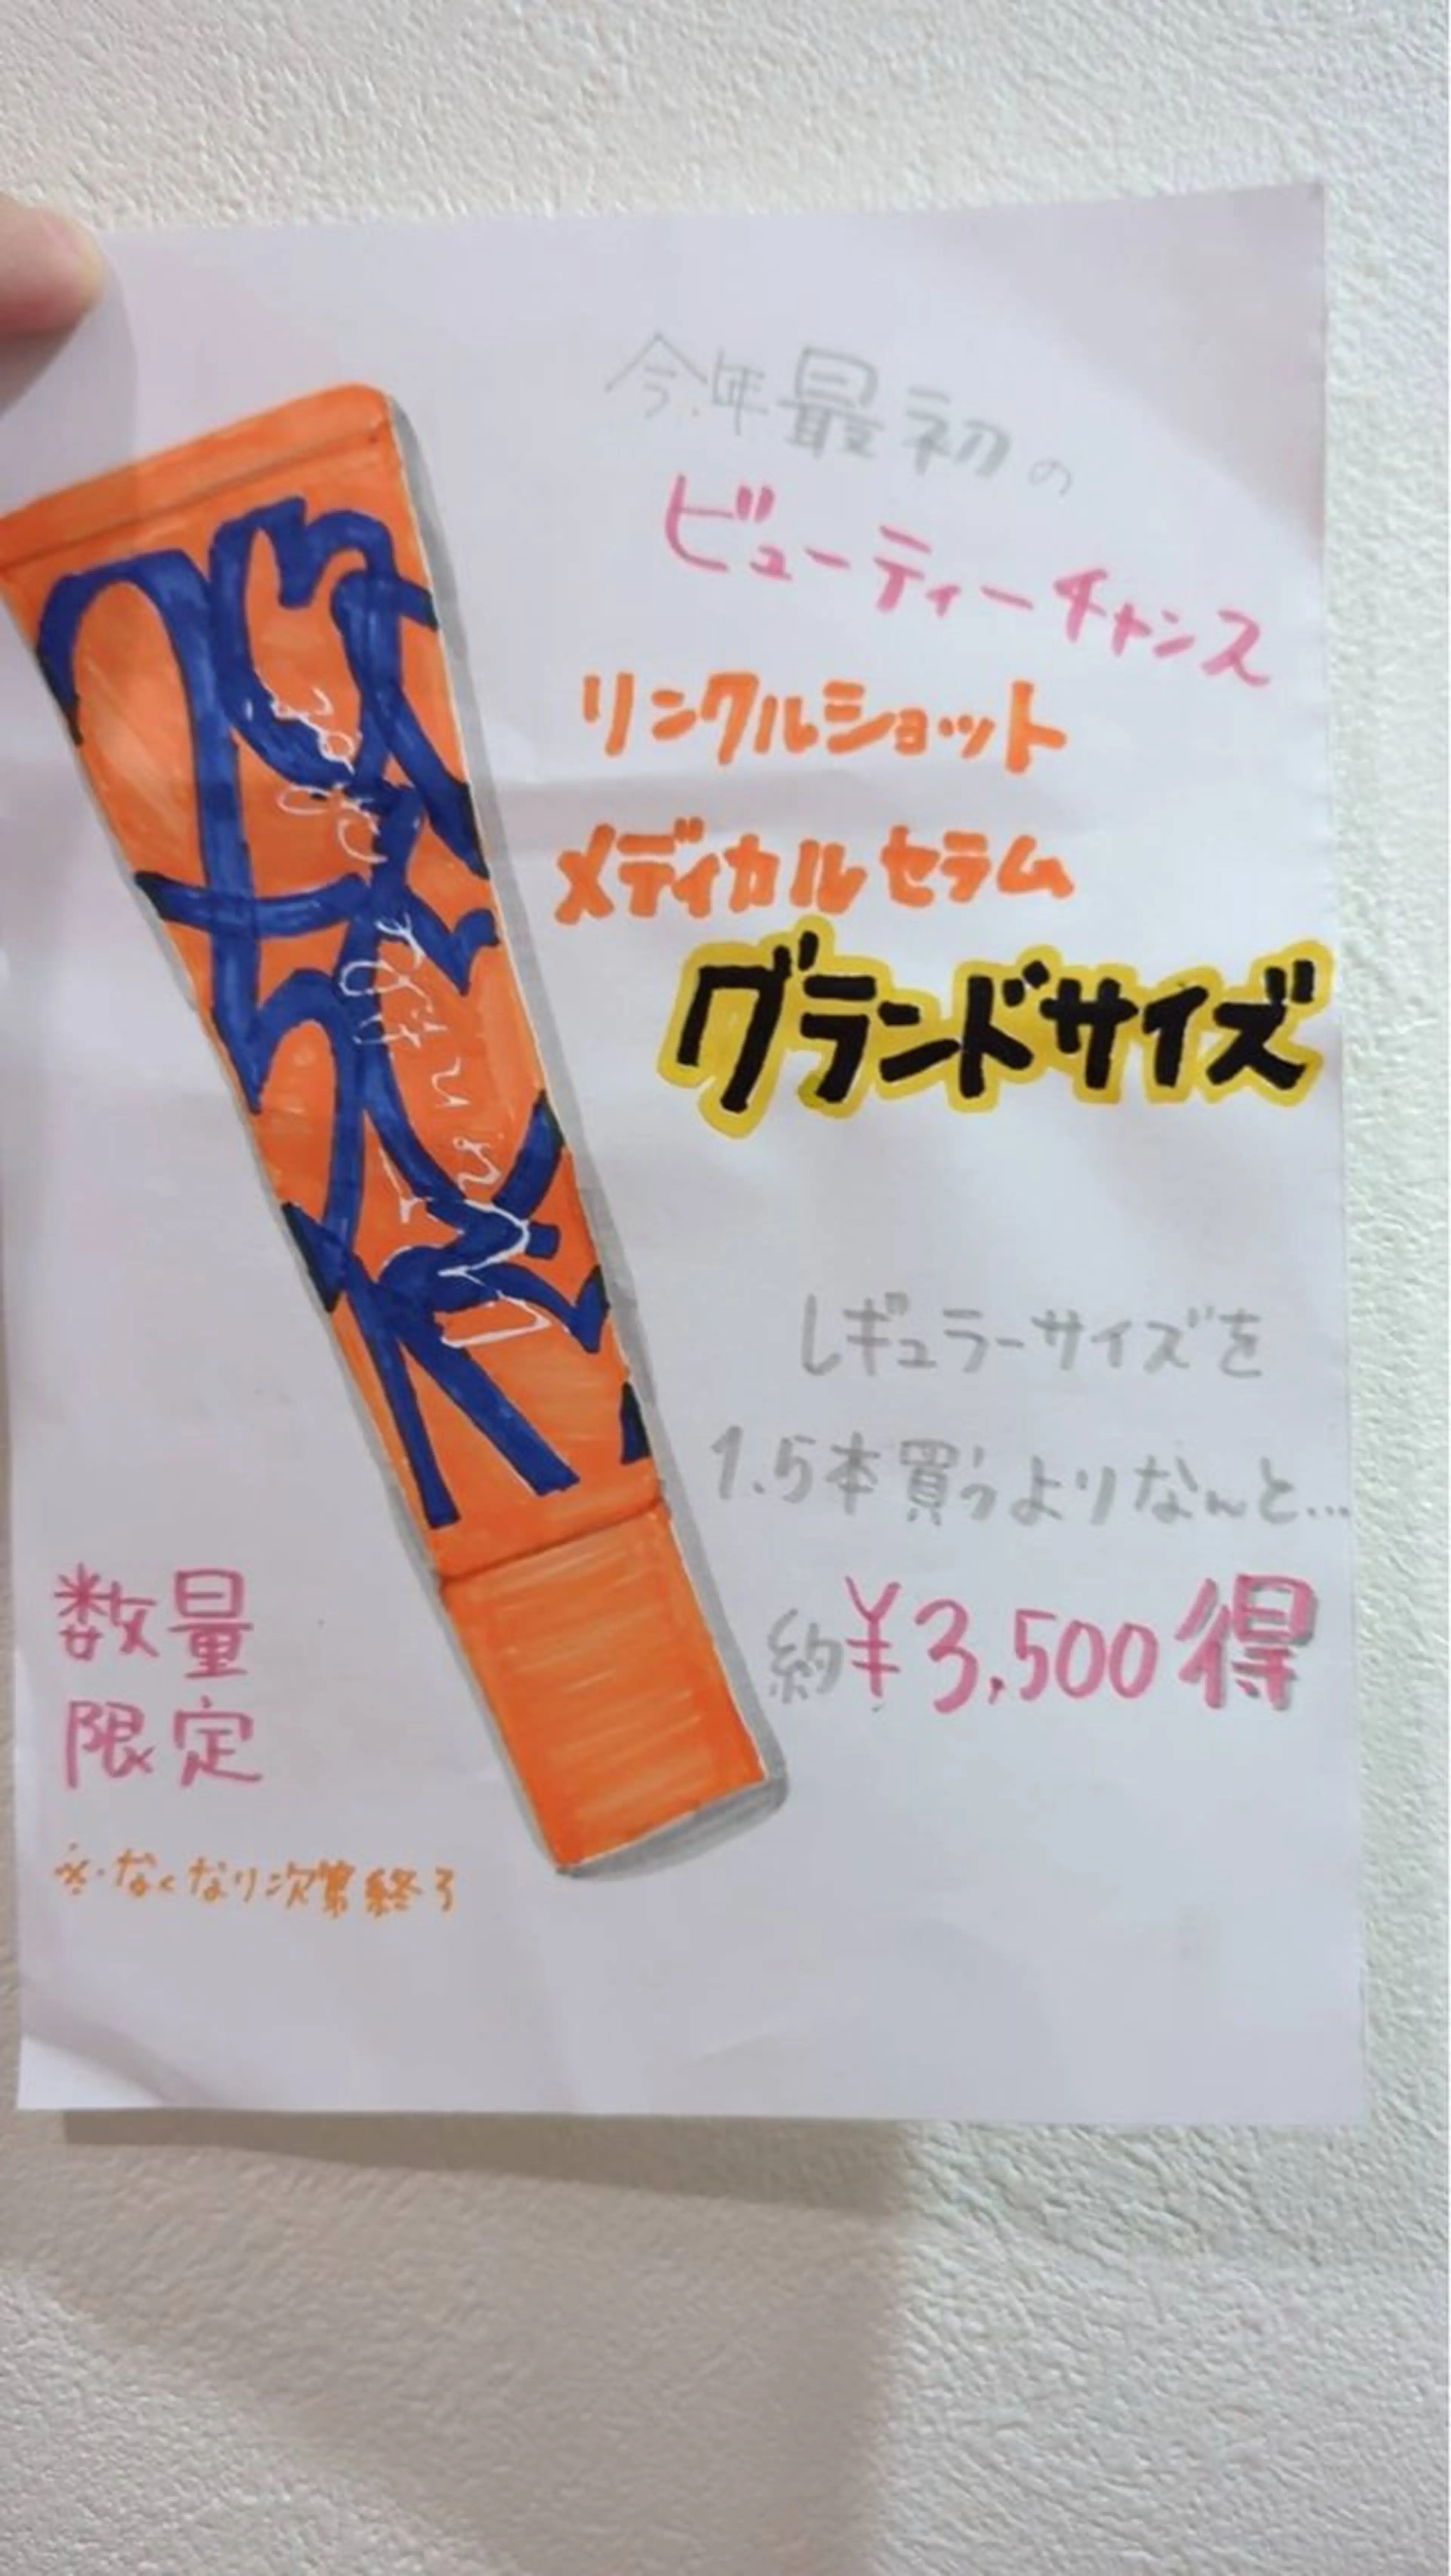 今年最初の
ビューティーチャンス
リンクルショット
メディカルセラム
グランドサイズ
レギュラーサイズを
1.5本買うよりなんと…
約¥3,500得
数量
限定
※なくなり次第終了